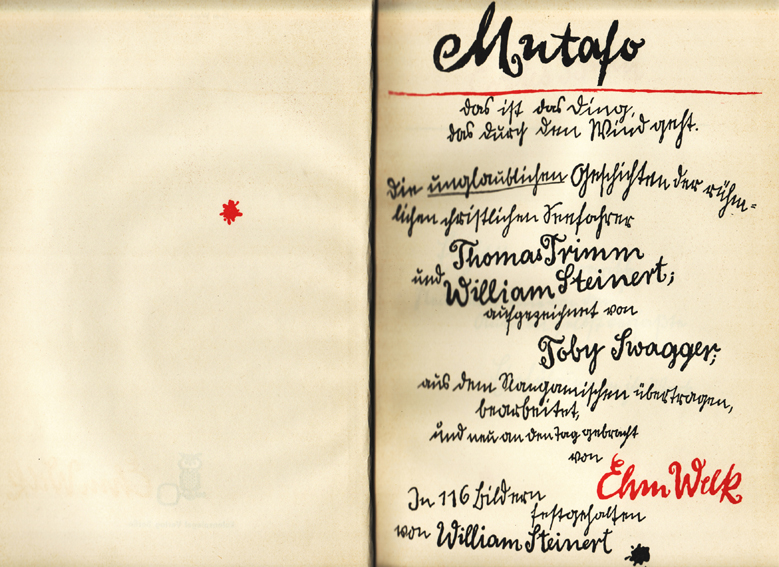 Mutafo
das ist das Ding,
das durch den Wind geht.
Die unglaublichen Geschichten der rühm-
lichen christlichen Seefahrer
Thomas Trimm
und William Steinert;
aufgezeichnet von
Toby Swagger;
aus dem Nangamischen übertragen,
bearbeitet,
und neu an den Tag gebracht
von
Ehm Welk
In 116 Bildern
festgehalten
von William Steinert
Ehm Welk